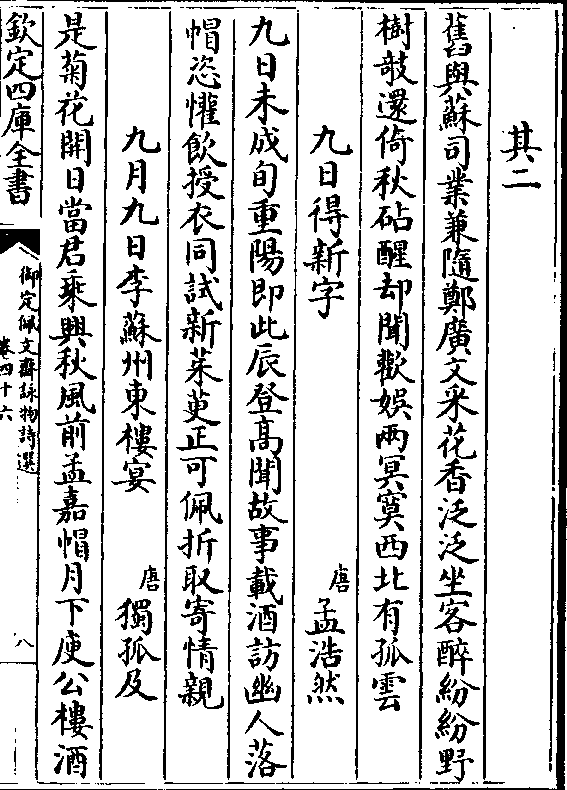 其二
舊與蘇司業兼隨鄭廣文采花香泛泛坐客醉紛紛野
樹攲還倚秋砧醒却聞歡娛兩冥寞西北有孤雲
九日得新字　唐　孟浩然
九日未成旬重陽即此辰登高聞故事載酒訪幽人落
帽恣懽飲授衣同試新茱萸正可佩折取寄情親
九月九日李蘇州東樓宴　唐　獨孤及
是菊花開日當君乘興秋風前孟嘉帽月下庾公樓酒
欽定四庫全書
御定佩文齋詠物詩選
卷四十六
八